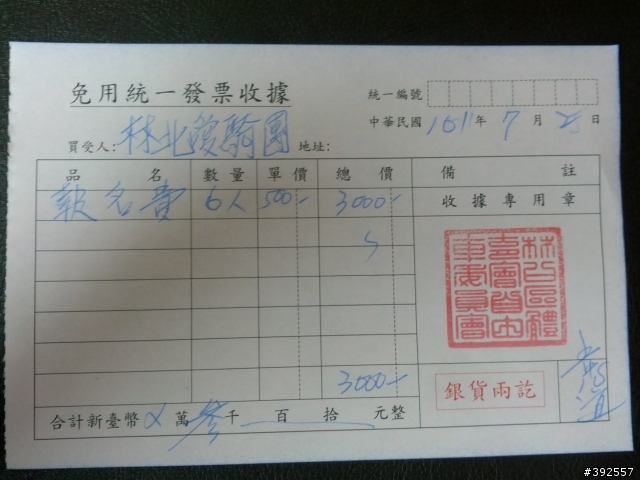 免用統一發票收據
統一編號
中華民國 101年 7月 2日
買受人：林北 騎團 地址：
品名 數量 單價 總價 備註
報名費 6人 500- 3000- 收據專用章
3000-
銀貨兩訖
合計新臺幣 萬 參千 百 拾 元整
#392557